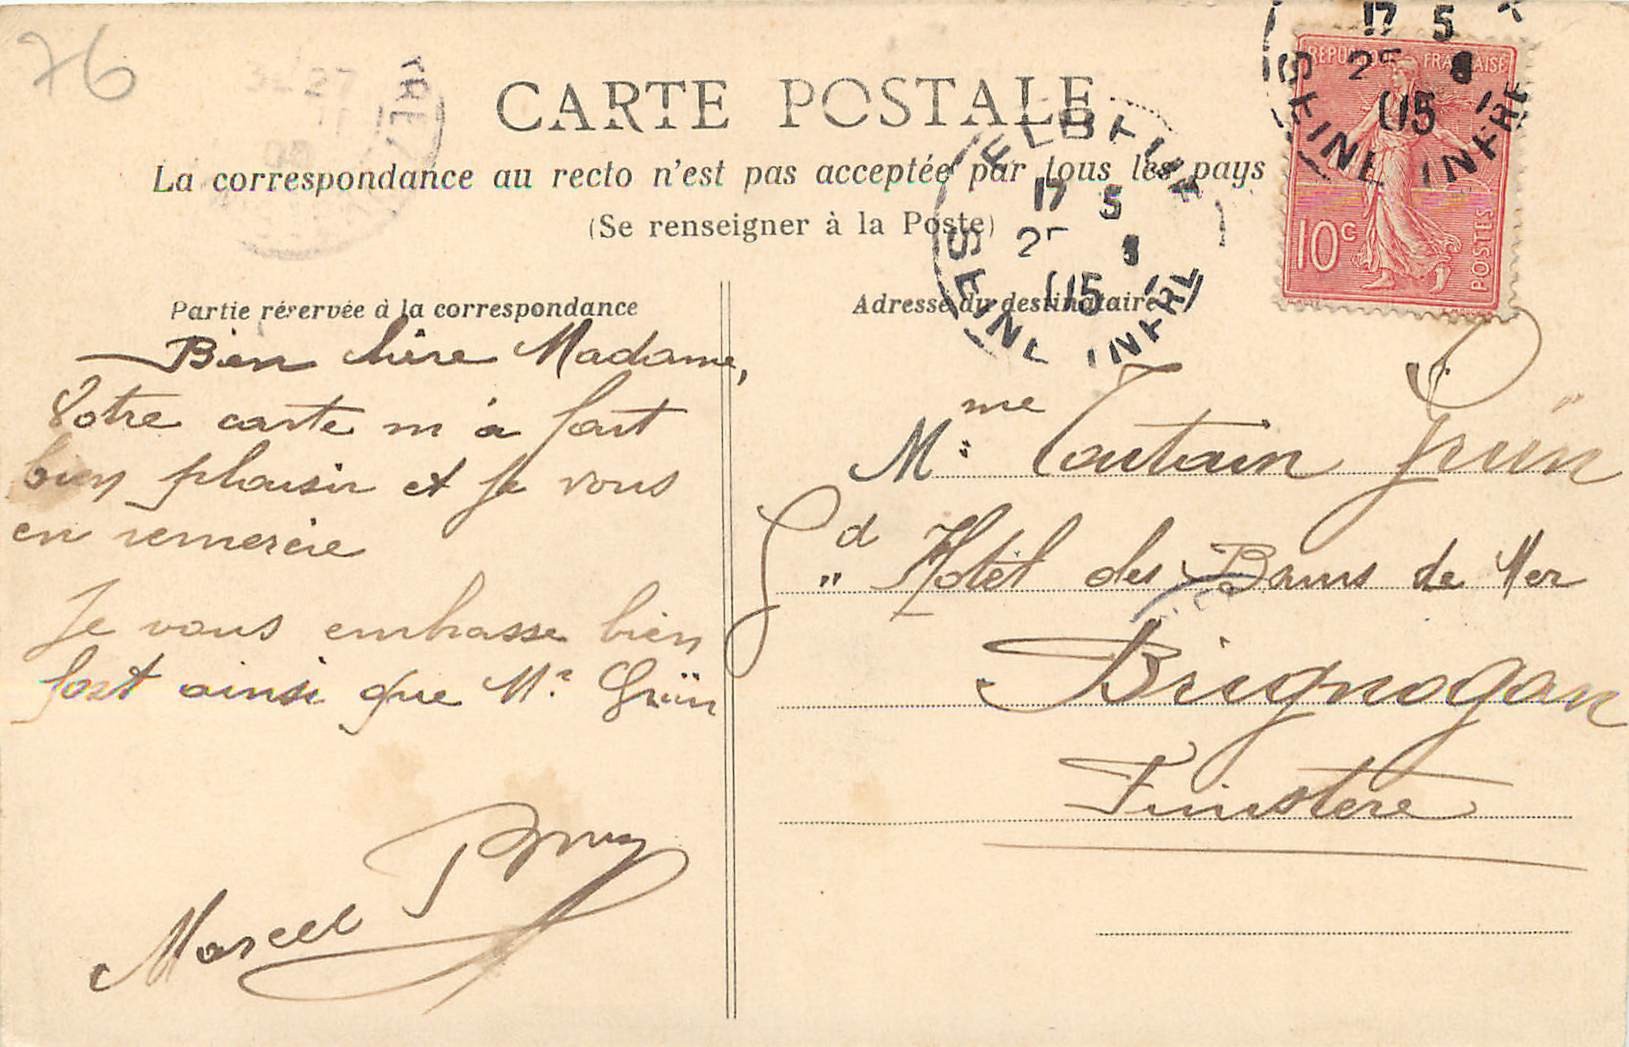 76
CARTE POSTALE
La correspondance au recto n'est pas acceptée par tous les pays
(Se renseigner à la Poste)
RÉPUBLIQUE FRANÇAISE
10c
POSTES
17 5
25 8
05
SEINE INFRE
17 5
25 8
05
SEINE INFRE
Partie réservée à la correspondance
Bien chère Madame,
Votre carte m'a fait
bien plaisir et je vous
en remercie
Je vous embrasse bien
fort ainsi que Mr Grün
Marcel
Adresse du destinataire
Mme Toutain Grün
Gd Hotel des Bains de Mer
Brignogan
Finistere